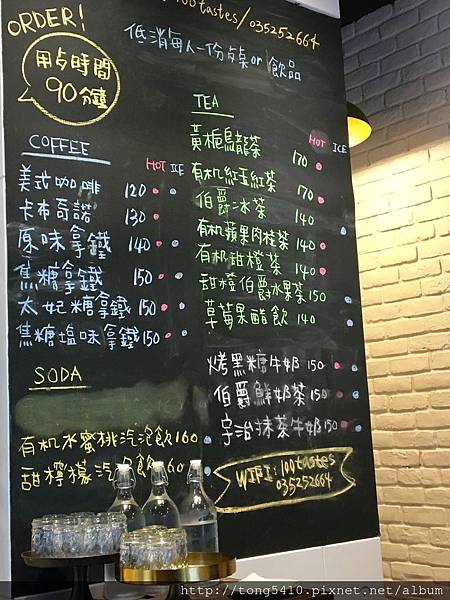 ORDER!
100tastes/035252664
低消每人一份歺桌or飲品
用歺時間
90分鐘
COFFEE
HOT ICE
美式咖啡 120
卡布奇諾 130
原味拿鐵 140
焦糖拿鐵 150
太妃糖拿鐵 150
焦糖塩味拿鐵 150
SODA
有机水蜜桃汽泡飲 160
甜檸檬汽泡飲 160
TEA
HOT ICE
黃梔烏龍茶 170
有机紅玉紅茶 170
伯爵冰茶 140
有机蘋果肉桂茶 140
有机甜橙茶 140
甜橙伯爵水果茶 150
草莓果醋飲 140
烤黑糖牛奶 150
伯爵鮮奶茶 150
宇治抹茶牛奶 150
WIFI: 100tastes
035252664
http://tong5410.pixnet.net/album